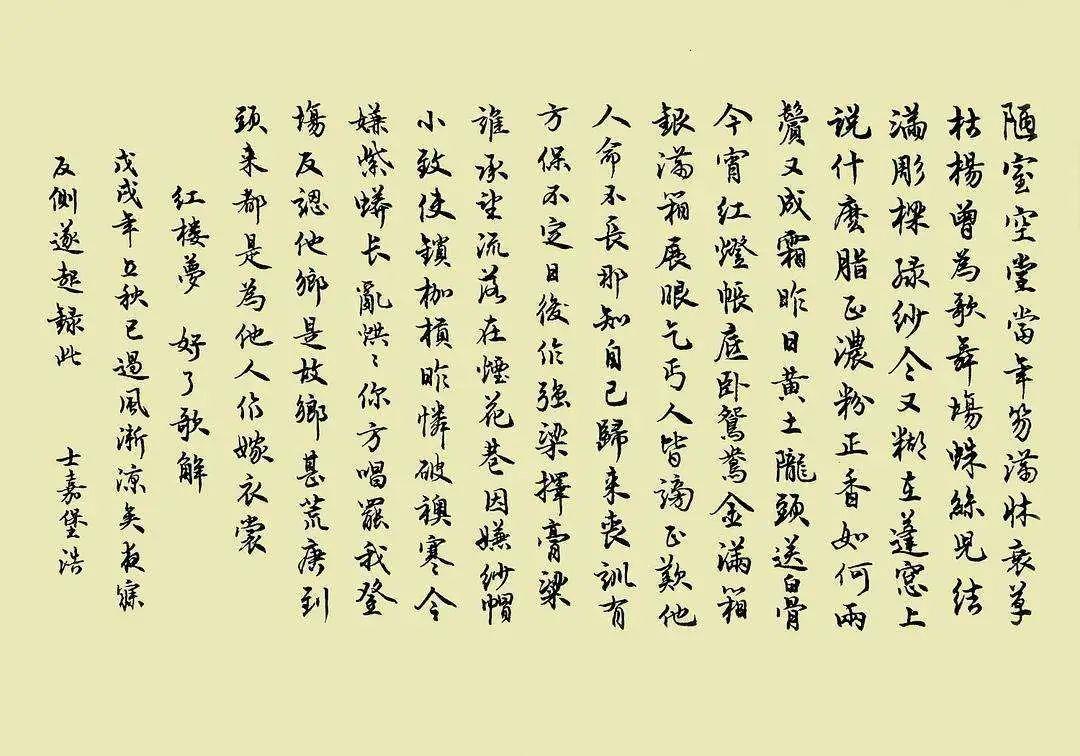 陋室空堂當年笏滿牀衰草
枯楊曾為歌舞場蛛絲兒結
滿彫樑綠紗今又糊在蓬窓上
说什麽脂正濃粉正香如何兩
鬢又成霜昨日黄土隴頭送白骨
今宵红燈帳底卧鴛鴦金滿箱
銀滿箱展眼乞丐人皆謗正歎他
人命不長那知自己歸来喪訓有
方保不定日後作强梁擇膏粱
誰承望流落在煙花巷因嫌紗帽
小致使鎖枷槓昨憐破襖寒今
嫌紫蟒长亂烘〻你方唱罷我登
塲反認他鄉是故鄉甚荒唐到
頭来都是為他人作嫁衣裳
红楼夢 好了歌解
戊戌年立秋已過風漸涼矣夜寐
反側遂起録此 士嘉堡浩